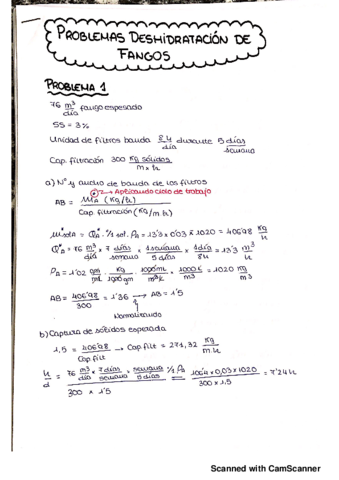 PROBLEMAS DESHIDRATACIÓN DE
FANGOS
PROBLEMA 1
76 m³/día fango espesado
SS = 3%
Unidad de filtros banda 8 h/día durante 5 días/semana
Cap. filtración 300 kg sólidos/m x h
a) Nº y ancho de banda de los filtros
2 → Aplicando ciclo de trabajo
AB = ṀA (Kg/h) / Cap. filtración (Kg/m.h)
= QA · % sol. ρA = 13'3 x 0'03 x 1020 = 406'98 kg/h
QA = 76 m³/día x 7 días/semana x 1 semana/5 días x 1 día/8h = 13'3 m³/h
ρA = 1'02 gm/ml · kg/1000 gm x 1000 ml x 1000 ℓ/m³ = 1020 kg/m³
AB = 406'98/300 = 1'36 → AB = 1'5
Normalizando
b) Captura de sólidos esperada
1,5 = 406'98/Cap. filt → Cap. filt = 271,32 Kg/m.h
h/d = 76 m³/día x 7 días/semana x semana/5 días · % ρA / 300 x 1'5 = 106'4 x 0,03 x 1020 / 300 x 1.5 = 7'24 h
Scanned with CamScanner